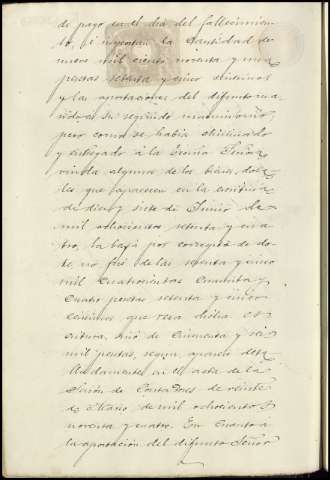 de pago en el dia del fallecimien-
to, é importan la cantidad de
nueve mil ciento noventa y una
pesetas setenta y cinco centimos
y las aportaciones del difunto ma-
rido á su segundo matrimonio,
pero como se habia eliminado
y entregado á la Señora
viuda algunos de los bienes dota-
les que aparecen en la escritura
de diez y siete de Junio de
mil ochocientos setenta y cua-
tro, la baja por concepto de do-
te, no fué de las setenta y cinco
mil cuatrocientas cuarenta y
cuatro pesetas setenta y cinco
centimos que reza dicha es-
critura, sinó de cincuenta y seis
mil pesetas, segun aparece
en el acta de la
Sesión de Contadores de veinte
de Marzo de mil ochocientos
noventa y cuatro. En cuanto á
la aportación del difunto Señor